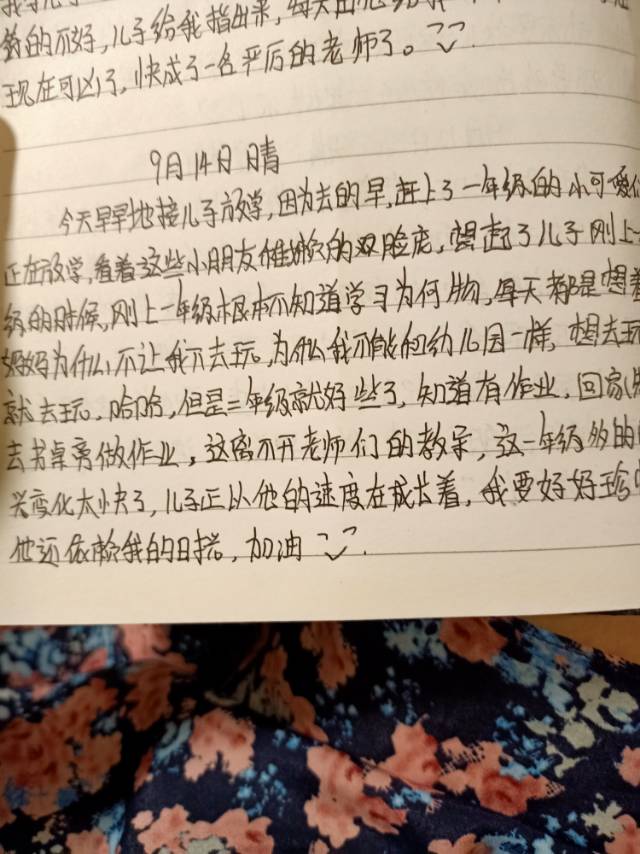 我的不好,儿子给我指出来,每天出
现在可凶了,快成了一名严厉的老师了。
9月14日 晴
今天早早地接儿子放学,因为去的早,赶上了一年级的小可爱们
正在放学,看着这些小朋友稚嫩的双脸庞,想起了儿子刚上一
级的时候,刚上一年级根本不知道学习为何物,每天都是想着
妈妈为什么不让我下去玩,为什么我不能和幼儿园一样,想去玩
就去玩,哈哈,但是二年级就好些了,知道有作业,回家
去书桌旁做作业,这离不开老师们的教导,这一年级多的
变化太快了,儿子正以他的速度在成长着,我要好好珍
他还依赖我的日子,加油